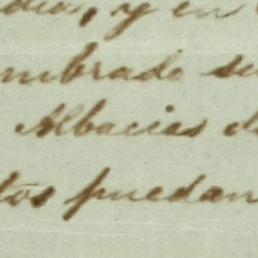 dia, y en
mbrado su
Albacias d
tos puedan